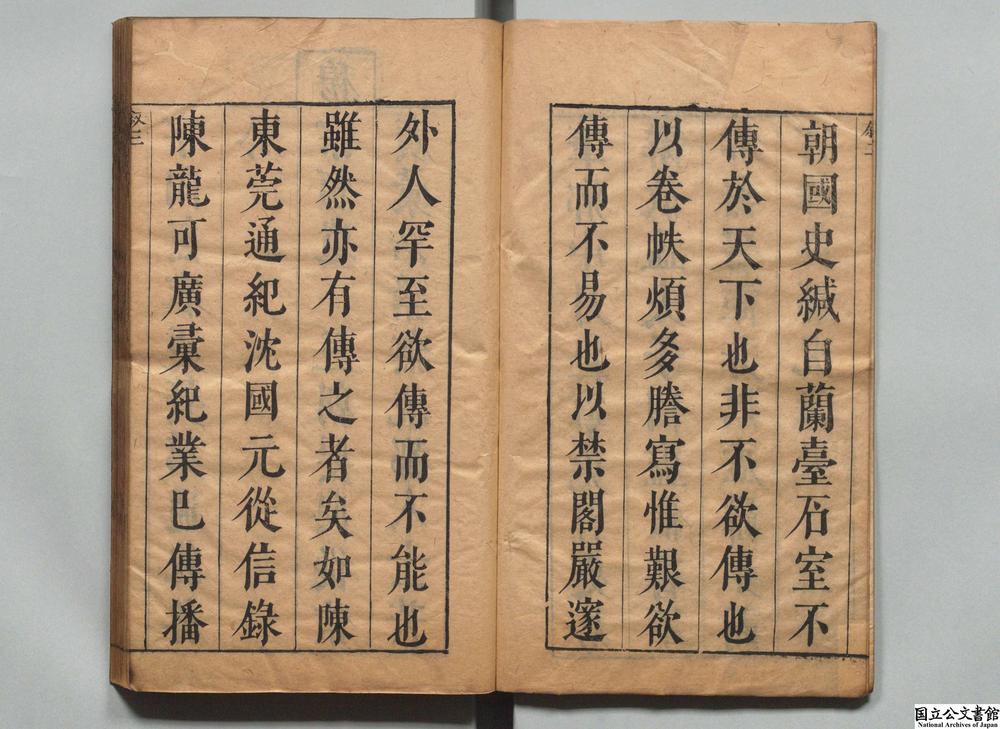 朝國史緘自蘭臺石室不
傳於天下也非不欲傳也
以卷帙煩多謄寫惟艱欲
傳而不易也以禁閣嚴邃
外人罕至欲傳而不能也
雖然亦有傳之者矣如陳
東莞通紀沈國元從信錄
陳龍可廣彙紀業巳傳播
国立公文書館
National Archives of Japan